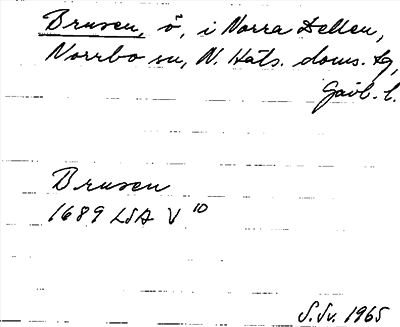 Brusen, ö, i Norra Dellen,
Norrbo sn, N. Häls. doms. tg,
Gävl. l.
Brusen
1689 LSA V 10
S.Sv. 1965